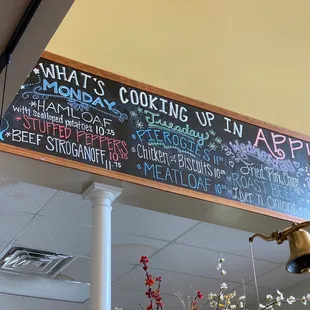 WHAT'S COOKING UP IN APP
MONDAY
HAMLOAF
with scalloped potatoes 10.25
STUFFED PEPPERS
BEEF STROGANOFF 10
Tuesday
PIEROGIES
Chicken & Biscuits
MEATLOAF
Wednesday
ROAST BEEF
Liver n Onions